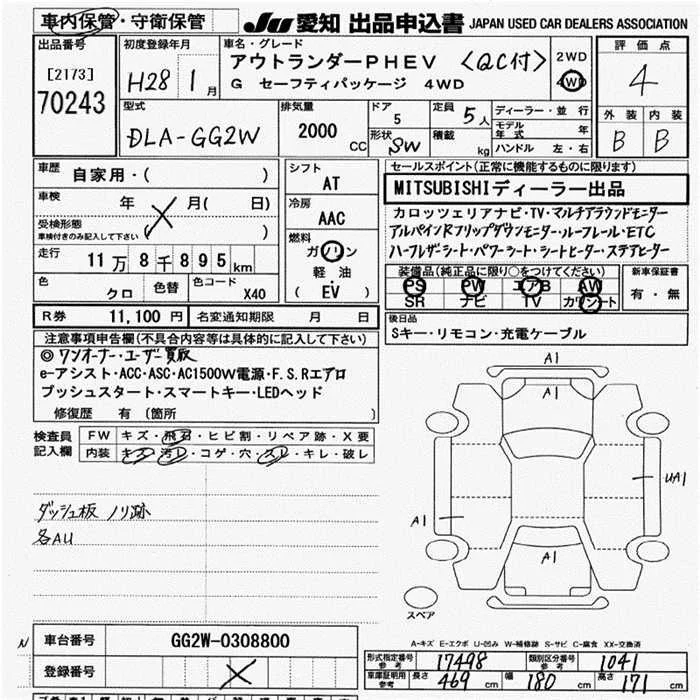 車内保管・守衛保管
JU 愛知 出品申込書 JAPAN USED CAR DEALERS ASSOCIATION
出品番号 初度登録年月 車名・グレード 評価点
[2173] H28 1月 アウトランダーPHEV 〈QC付〉 2WD 4
70243 G セーフティパッケージ 4WD 4WD
型式 排気量 ドア 定員 ディーラー・並行 外装 内装
DLA-GG2W 2000CC 5 5人 モデル年式 年 B B
形状 SW 積載 kg ハンドル 左・右
車歴 自家用・( ) シフト AT
セールスポイント(正常に機能するものに限ります)
車検 年 月( 日) 冷房 AAC
MITSUBISHIディーラー出品
受検形態
車検付きのみ記入して下さい ( )
カロッツェリアナビ・TV・マルチアラウンドモニター
アルパインRフリップダウンモニター・ルーフレール・ETC
ハーフレザーシート・パワーシート・シートヒーター・ステアヒーター
走行 11万8千895km 燃料 ガソリン 軽油 ( EV )
装備品(純正品に限り○をつけてください) 新車保証書
PS PW エアB AW 有・無
SR ナビ TV カワシート
色 クロ 色替 色コード X40
R券 11,100円 名変通知期限 月 日
後日品
Sキー・リモコン・充電ケーブル
注意事項申告欄(不具合内容等は具体的に記入して下さい)
◎ワンオーナー・ユーザー買取
e-アシスト・ACC・ASC・AC1500W電源・F.S.Rエアロ
プッシュスタート・スマートキー・LEDヘッド
修復歴 有 (箇所 )
検査員記入欄 FW キズ・飛石・ヒビ割・リペア跡・X要
内装 キズ・汚レ・コゲ・穴・スレ・キレ・破レ
ダッシュ板 ノリ跡
各AU
A1
A1
UA1
A1
A1
スペア
A-キズ E-エクボ U-凹み W-補修跡 S-サビ C-腐食 XX-交換済
N 車台番号 GG2W-0308800
登録番号
形式指定番号 参考 17498 類別区分番号 参考 1041
車庫証明用 参考 長さ 469cm 幅 180cm 高さ 171cm